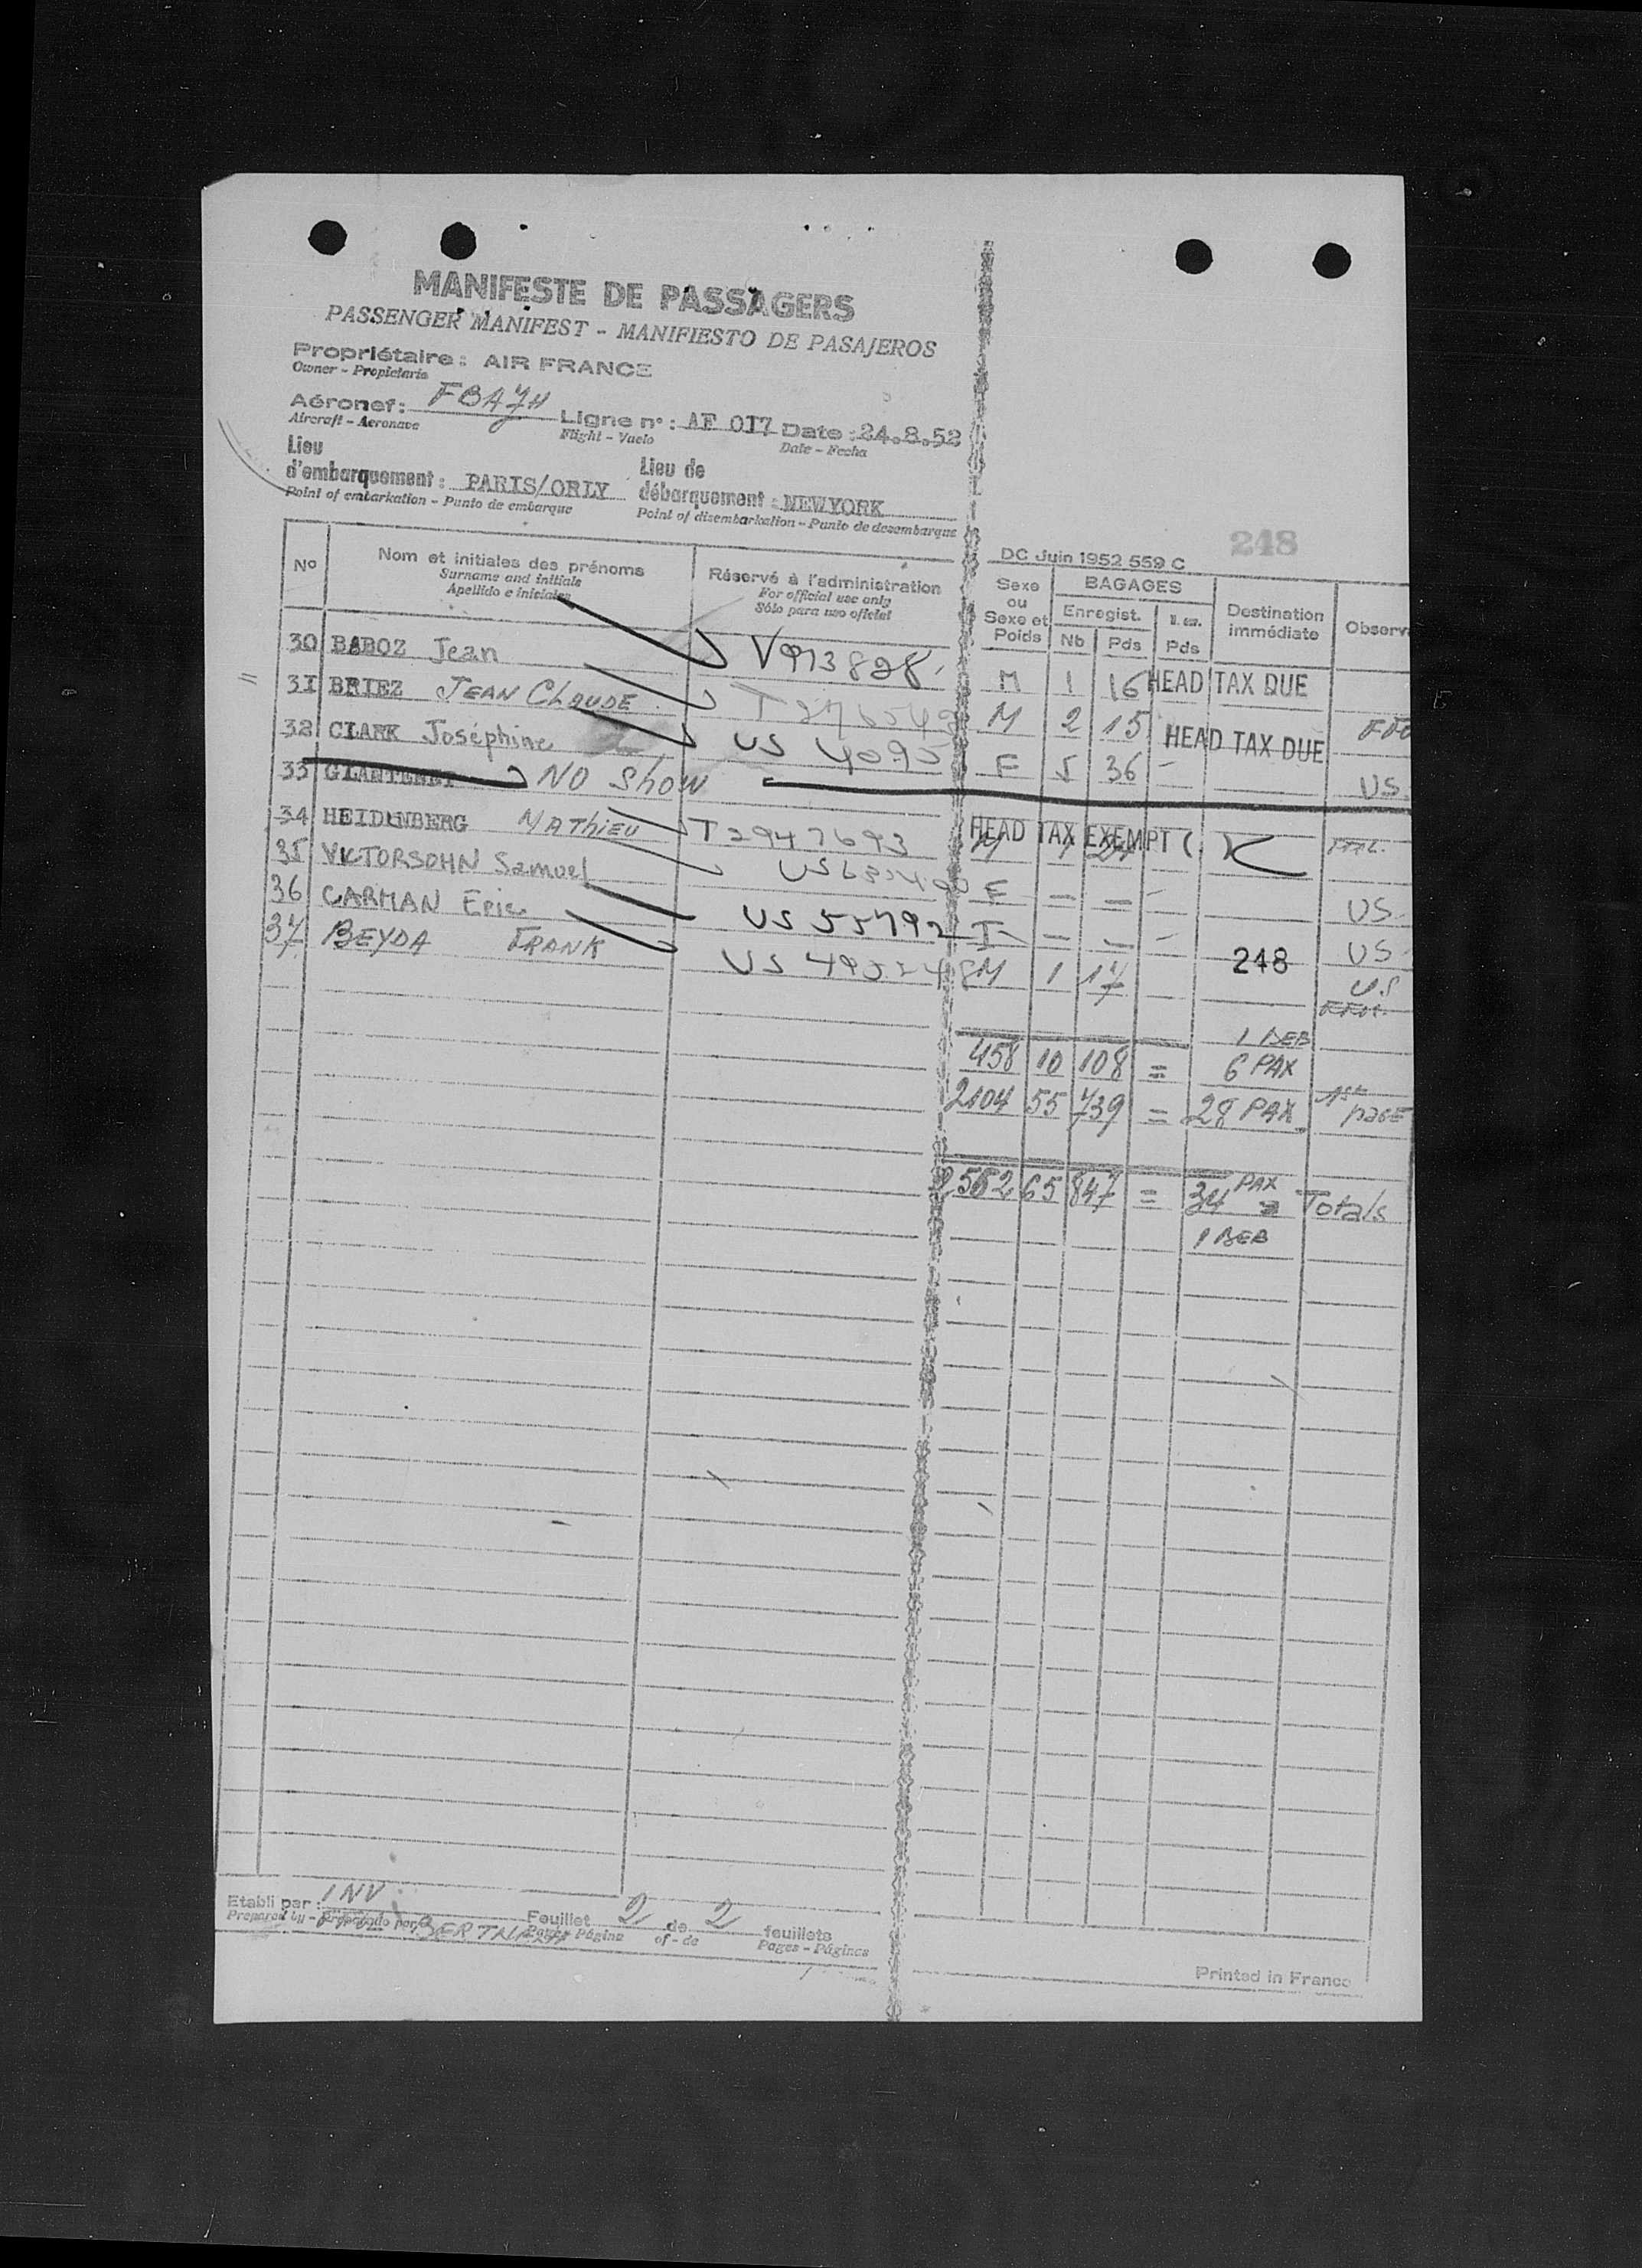 MANIFESTE DE PASSAGERS
PASSENGER MANIFEST - MANIFIESTO DE PASAJEROS
Propriétaire : AIR FRANCE
Owner - Propietario
Aéronef : Ligne n° : AF 017 Date : 24.8.52
Aircraft - Aeronave Flight - Vuelo Date - Fecha
Lieu d'embarquement : PARIS/ORLY Lieu de débarquement : NEWYORK
Point of embarkation - Punto de embarque Point of disembarkation - Punto de desembarque
248
DC Juin 1952 559 C
N° Nom et initiales des prénoms Réservé à l'administration Sexe ou Sexe et Poids BAGAGES Destination immédiate Observ
Surname and initials For official use only Enregist.
Apellido e iniciales Sólo para uso oficial Nb Pds Pds
30 BABOZ Jean V913828 M 1 16 HEAD TAX DUE
31 BRIEZ JEAN CLAUDE M 2 15 HEAD TAX DUE
32 CLARK Joséphine US 4095 F 5 36 - US
33 NO Show
34 HEIDENBERG MAThieu T2947693 HEAD TAX EXEMPT (
35 VICTORSOHN Samuel - - - US
36 CARMAN Eric US 55792 - - - US
37 BEYDA FRANK M 1 17 248 US
1 BEB
458 10 108 = 6 PAX
2104 55 739 = 28 PAX 1st page
2562 65 847 = 34 PAX = Totals
1 BEB
Etabli par : INV Feuillet 2 de 2 feuillets
Prepared by - Preparado por Page - Página of - de Pages - Páginas
Printed in France